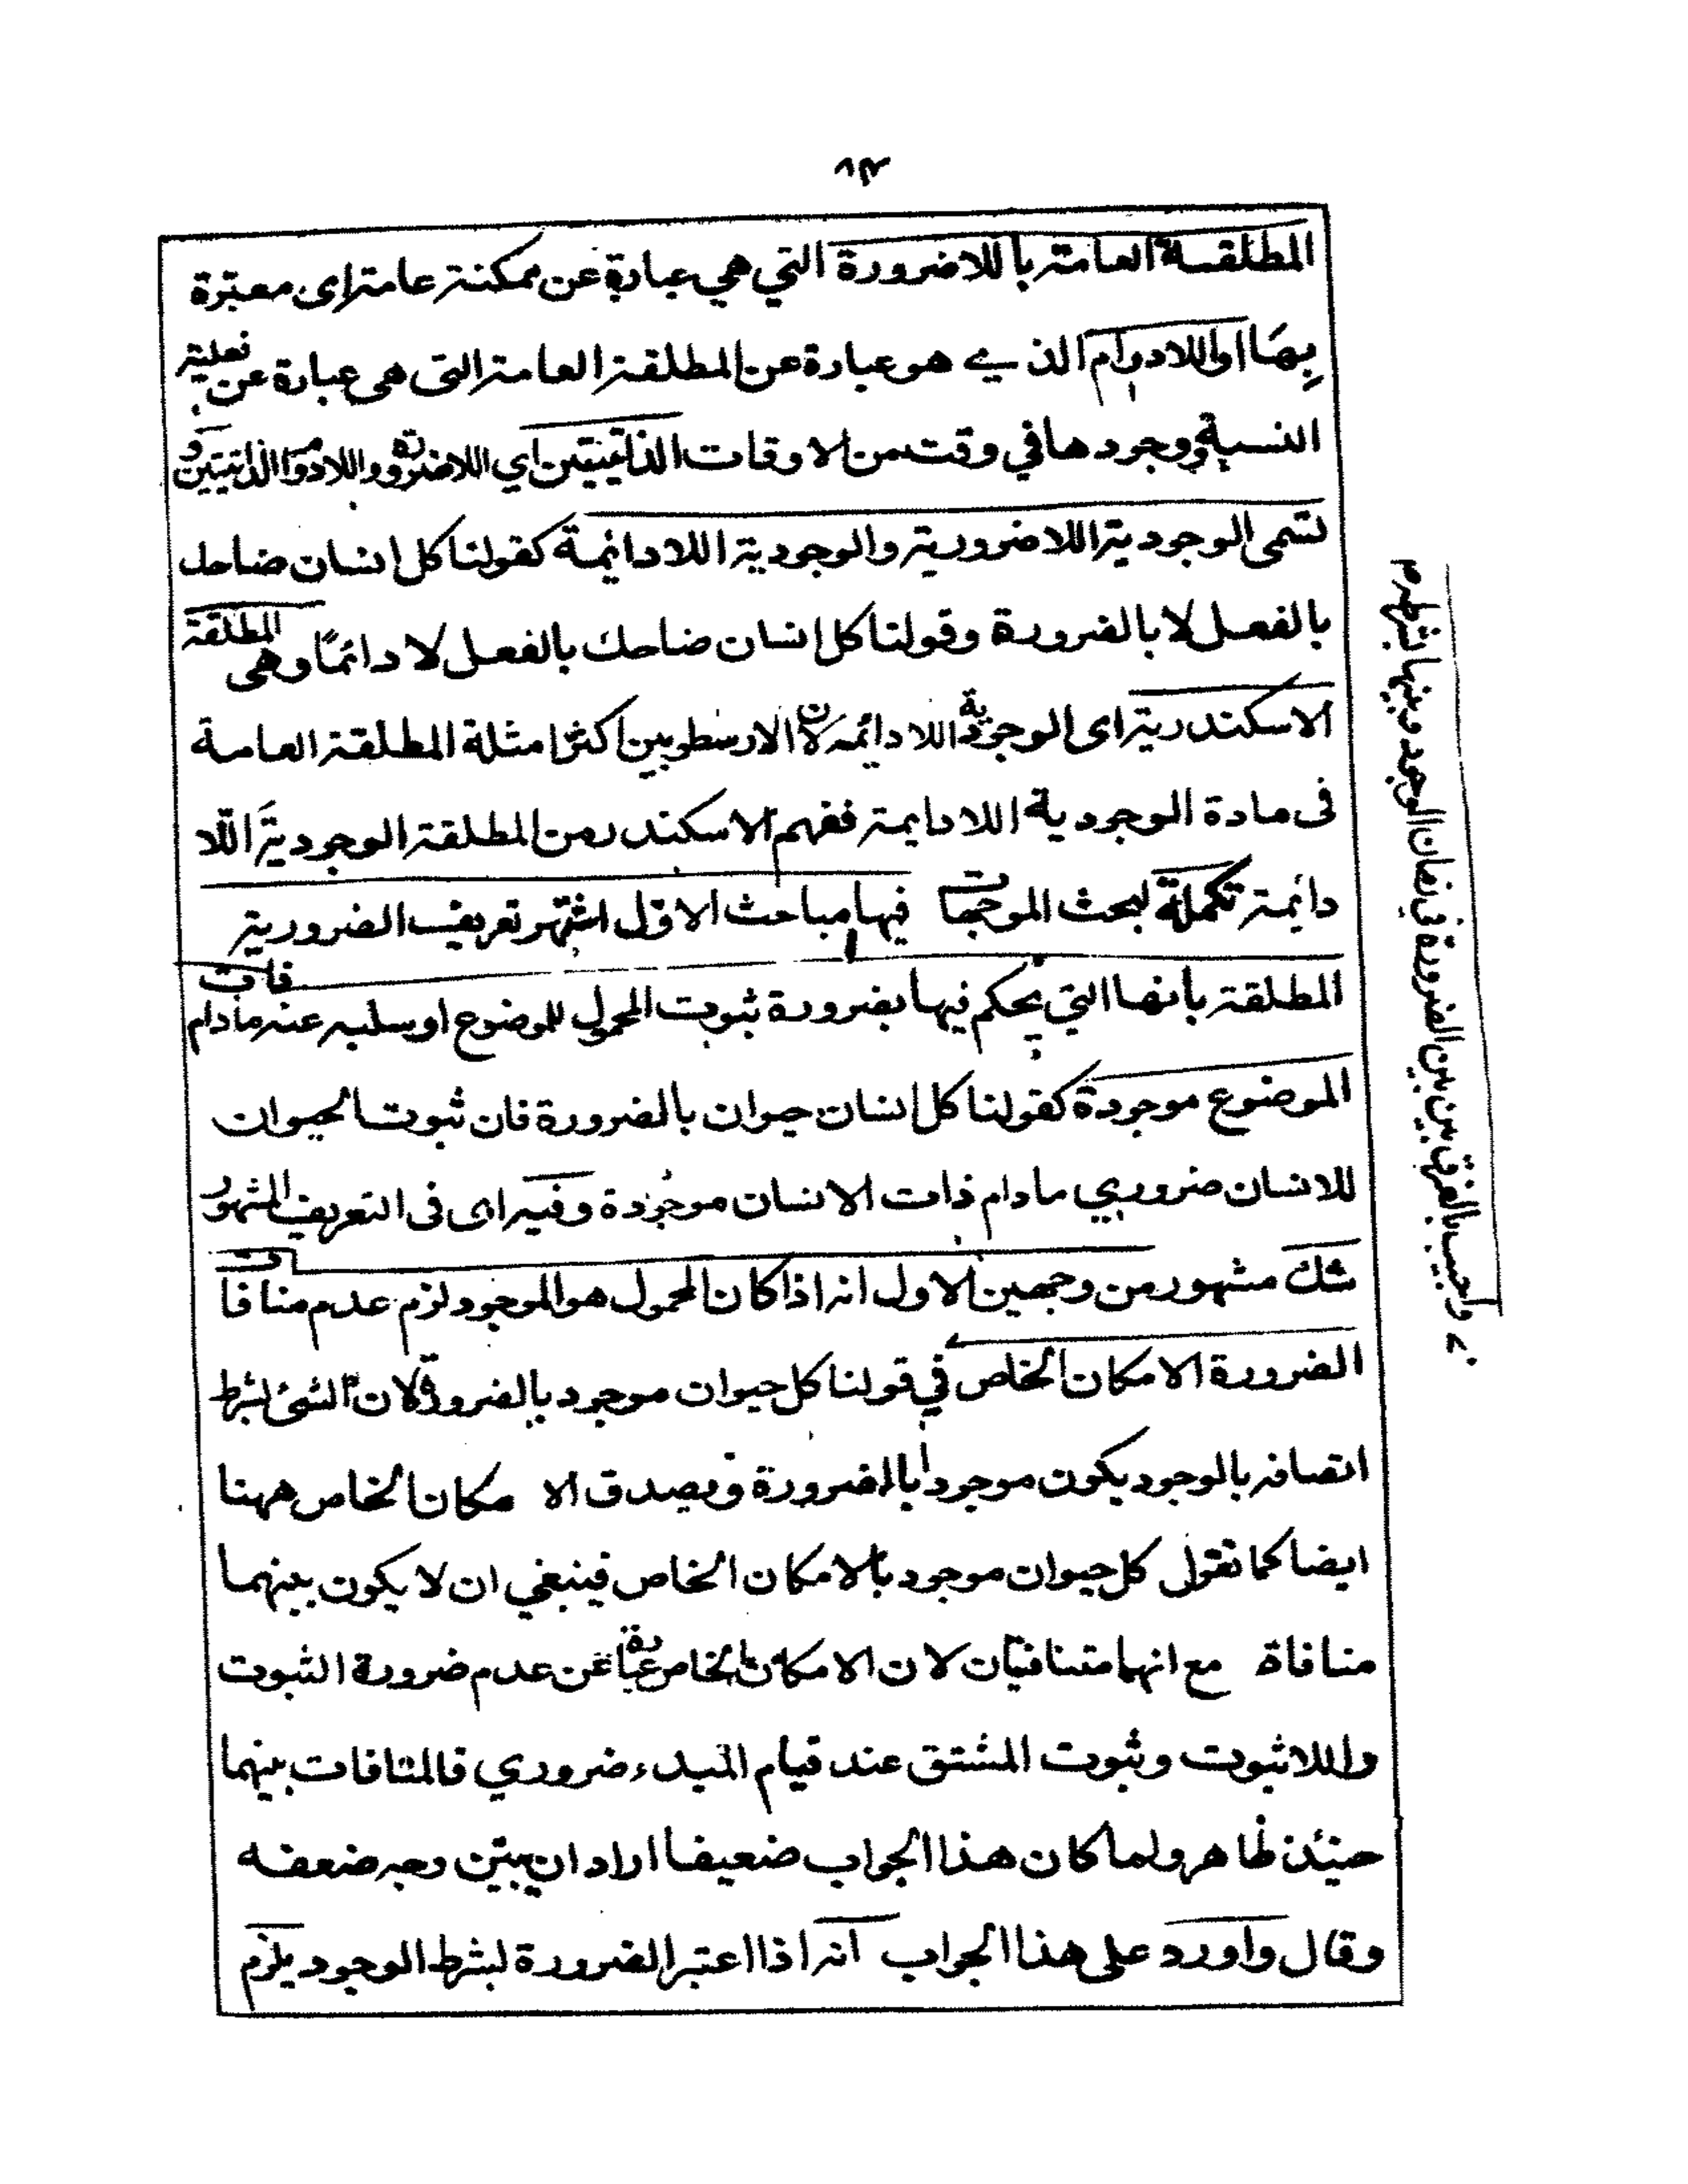 ٨٣
المطلقة العامة باللاضرورة التي هي عبارة عن ممكنة عامة اى معبّرة
بِهَا او اللادوام الذي هو عبارة عن المطلقة العامة التى هى عبارة عن فعلية
النسبة ووجودها في وقت من الاوقات الذاتيتين اي اللاضرورة واللادوام الذاتيتين و
تسمى الوجودية اللاضرورية والوجودية اللادائمة كقولنا كل انسان ضاحك
بالفعل لا بالضرورة وقولنا كل انسان ضاحك بالفعل لا دائمًا وهى المطلقة
الاسكندرية اى الوجودية اللادائمة لان الارسطوبين اكثر امثلة المطلقة العامة
فى مادة الوجودية اللادايمة ففهم الاسكندر من المطلقة الوجودية اللّا
دائمة تكملة لبحث الموجهات فيها مباحث الاول اشتهر تعريف الضرورية
المطلقة بأنها التي يحكم فيها بضرورة ثبوت المحمول للموضوع او سلبه عنه مادام ذات
الموضوع موجودة كقولنا كل انسان حيوان بالضرورة فان ثبوت الحيوان
للانسان ضروري مادام ذات الانسان موجودة وفيه اى فى التعريف المشهور
شك مشهور من وجهين الاول انه اذا كان المحمول هو الموجود لزم عدم منافات
الضرورة الامكان الخاص في قولنا كل حيوان موجود بالضرورة لان الشئ بشرط
اتصافه بالوجود يكون موجودا بالضرورة ويصدق الامكان الخاص ههنا
ايضا كما تقول كل حيوان موجود بالامكان الخاص فينبغي ان لا يكون بينهما
منافاة مع انهما متنافيان لان الامكان الخاص عبارة عن عدم ضرورة الثبوت
واللاثبوت وثبوت المشتق عند قيام المبدء ضروري فالمنافات بينهما
حينئذ ظاهر ولما كان هذا الجواب ضعيفا اراد ان يبيّن وجه ضعفه
وقال واورد على هذا الجواب انه اذا اعتبر الضرورة بشرط الوجود يلزم
واجيب بالفرق بين بين الضرورة في زمان الوجود وبينها بشرطه م